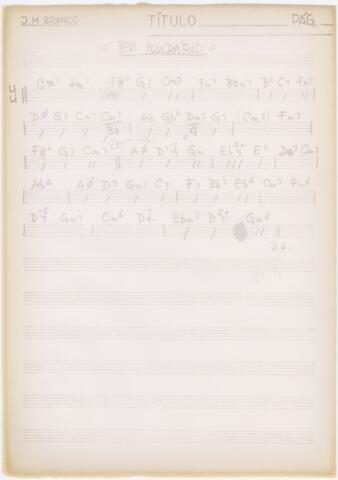 J.M BRANCO TÍTULO PÁG.
SER SOLIDÁRIO
Cm7 Fm7 F#° G7 Cm7 Fm7 Bbm7 B° C7 Fm7
DØ G7 Cm7 Cm7 Ab Gb° Dm7 G7 (Cm7) Fm7
Bb
F#° G7 Cm7 AØ Gm E° Cm7
AbΔ AØ D7 Gm7 C7 F7 Bb7 EbΔ Cm7 Fm6
Gm7 Cm6 Ebm7 Gm6
D.C.